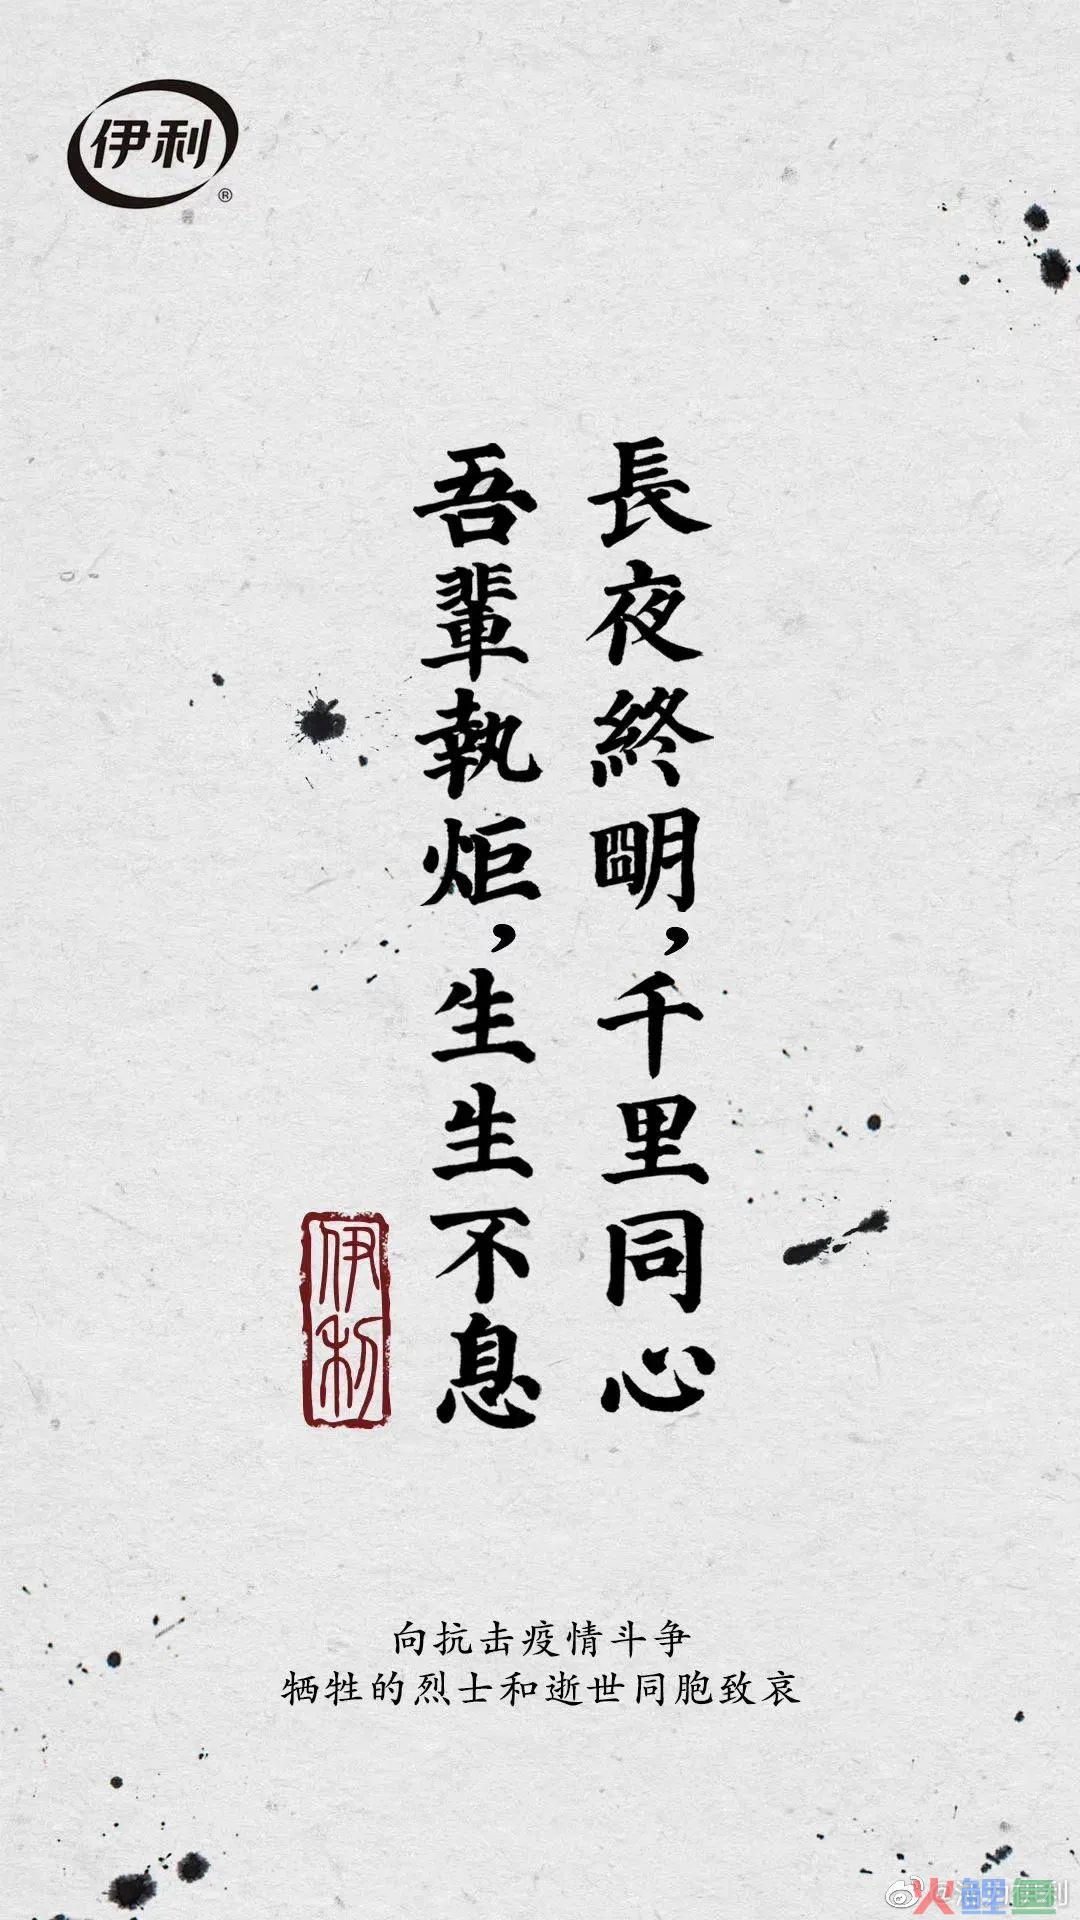 伊利
®
長夜終明，千里同心
吾輩執炬，生生不息
伊利
向抗击疫情斗争
牺牲的烈士和逝世同胞致哀
火鲤鱼